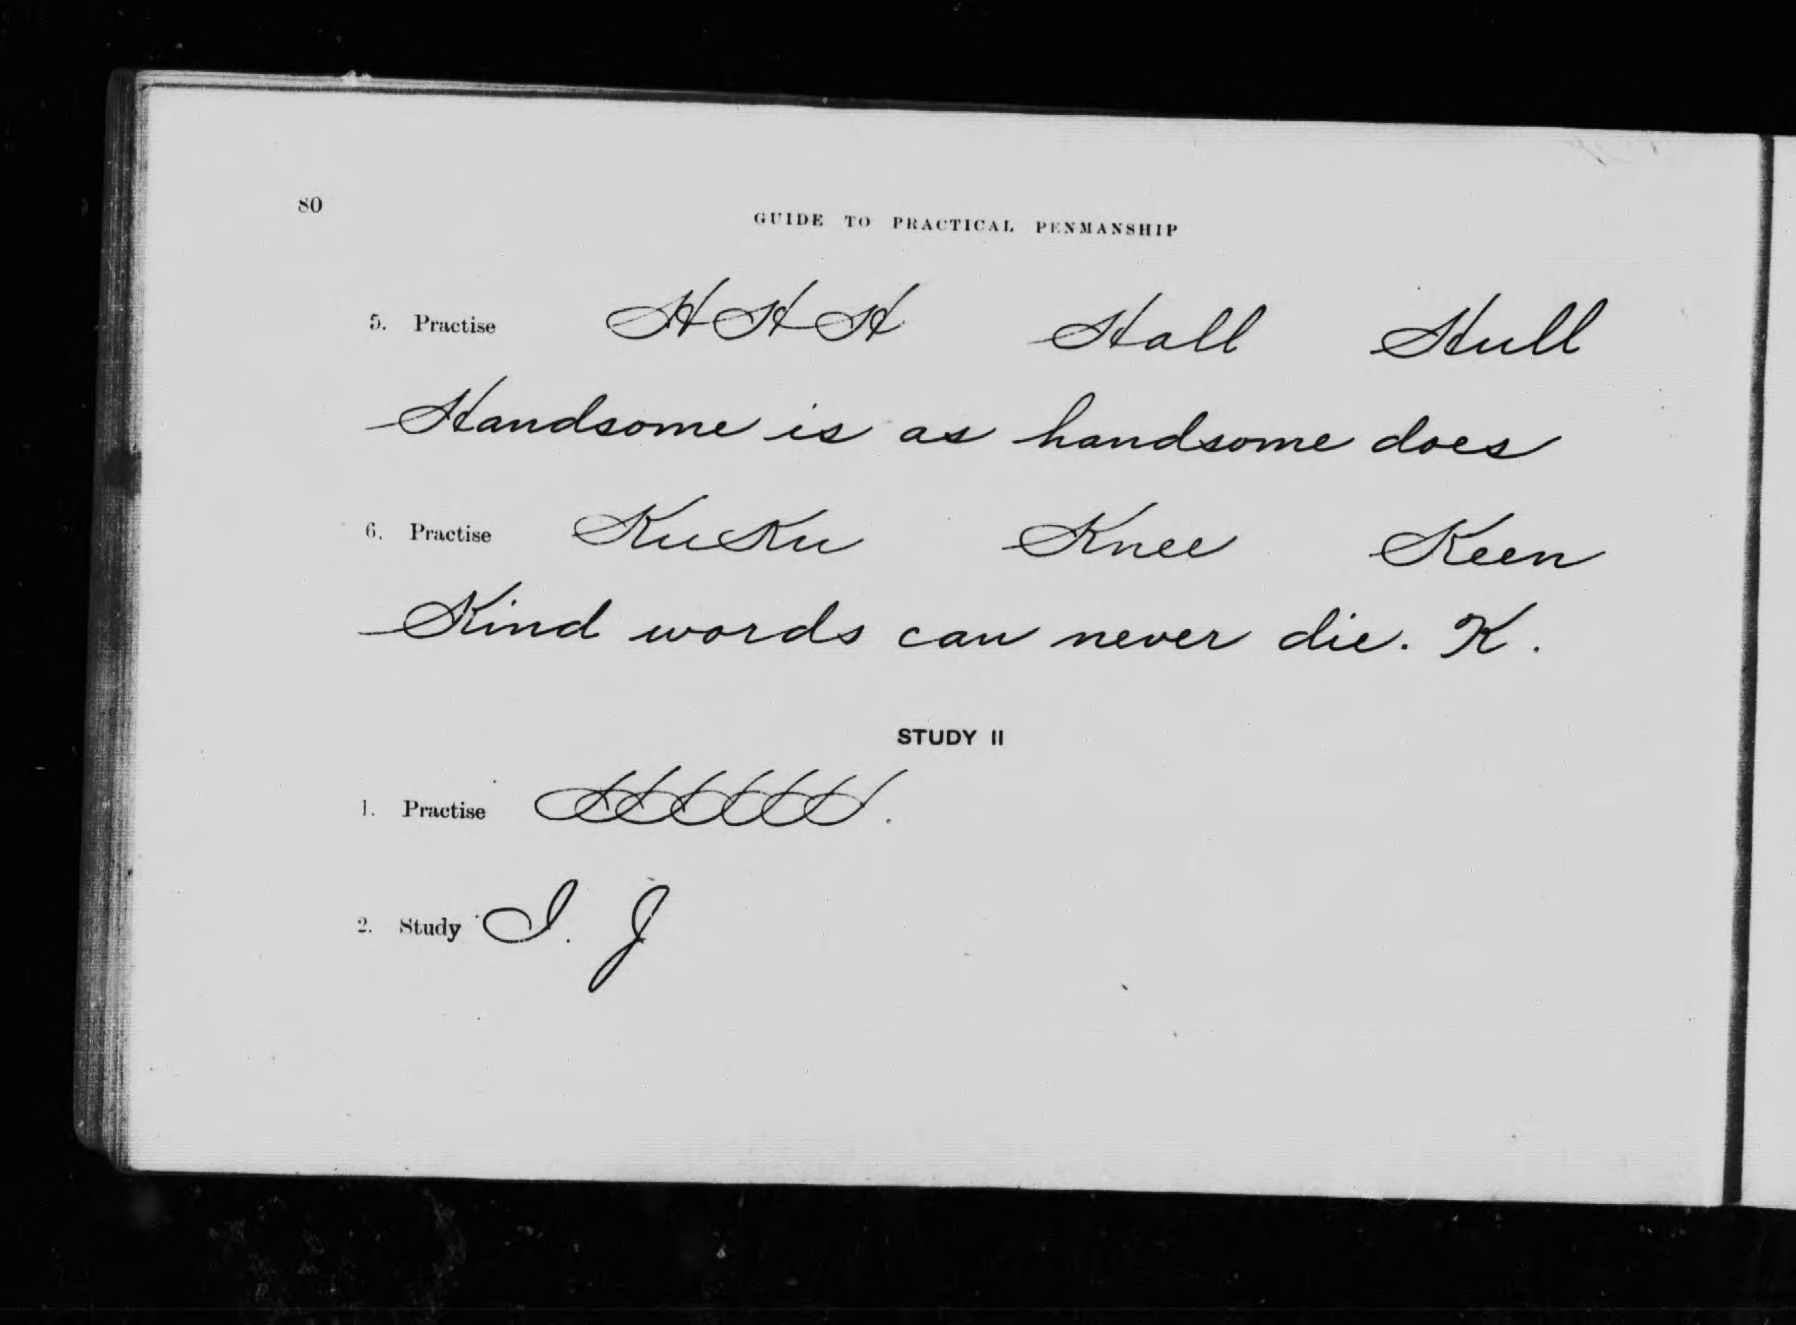 80
GUIDE TO PRACTICAL PENMANSHIP
5. Practise H H H Hall Hull
Handsome is as handsome does
6. Practise Ku Ku Knee Keen
Kind words can never die. K.
STUDY II
1. Practise
2. Study I. J